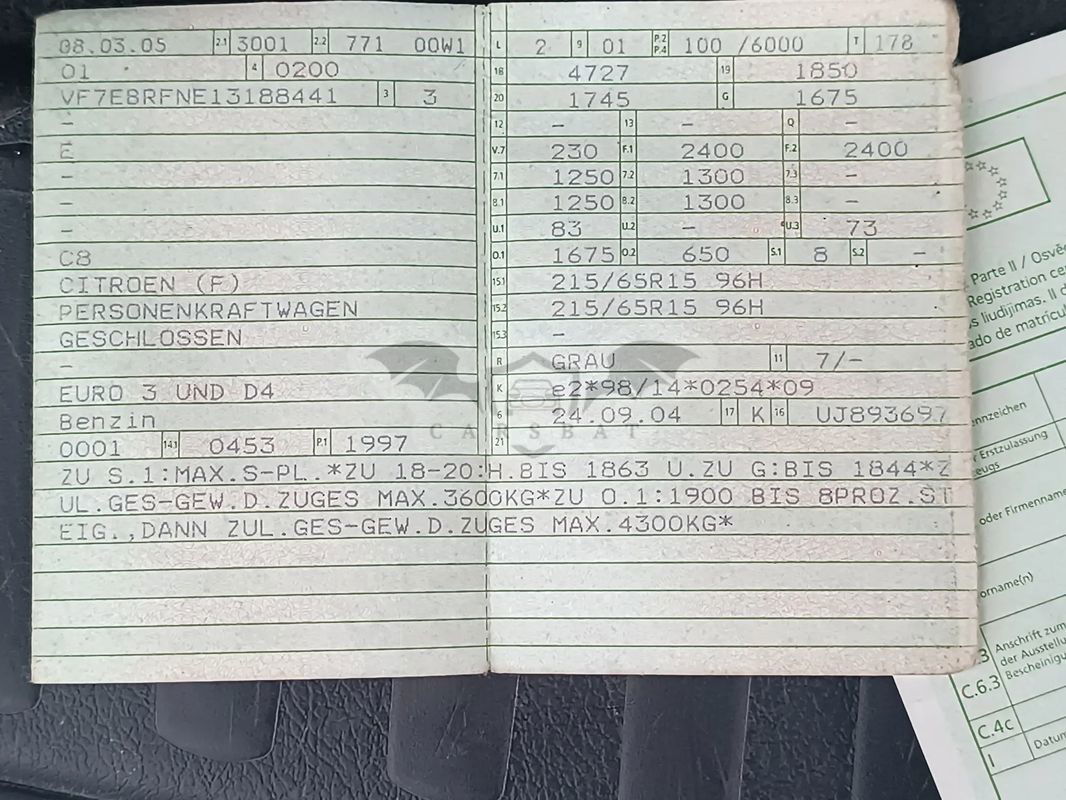 08.03.05 2.1 3001 2.2 771 00W1
01 4 0200
VF7E8RFNE13188441 3 3
-
E
-
-
-
C8
CITROEN (F)
PERSONENKRAFTWAGEN
GESCHLOSSEN
-
EURO 3 UND D4
Benzin
0001 14.1 0453 P.1 1997
L 2 9 01 P.2 P.4 100 /6000 T 178
18 4727 19 1850
20 1745 G 1675
12 - 13 - Q -
V.7 230 F.1 2400 F.2 2400
7.1 1250 7.2 1300 7.3 -
8.1 1250 8.2 1300 8.3 -
U.1 83 U.2 - U.3 73
O.1 1675 O.2 650 S.1 8 S.2 -
15.1 215/65R15 96H
15.2 215/65R15 96H
15.3 -
R GRAU 11 7/-
K e2*98/14*0254*09
6 24.09.04 17 K 16 UJ893697
21
ZU S.1:MAX.S-PL.*ZU 18-20:H.BIS 1863 U.ZU G:BIS 1844*Z
UL.GES-GEW.D.ZUGES MAX.3600KG*ZU O.1:1900 BIS 8PROZ.ST
EIG.,DANN ZUL.GES-GEW.D.ZUGES MAX.4300KG*
CARSBAT
Parte II / Osvě
Registration ce
s liudijimas. II d
ado de matrícu
nnzeichen
Erstzulassung
eugs
oder Firmenname
orname(n)
3 Anschrift zum
der Ausstellu
Bescheinigu
C.6.3
C.4c
I Datum